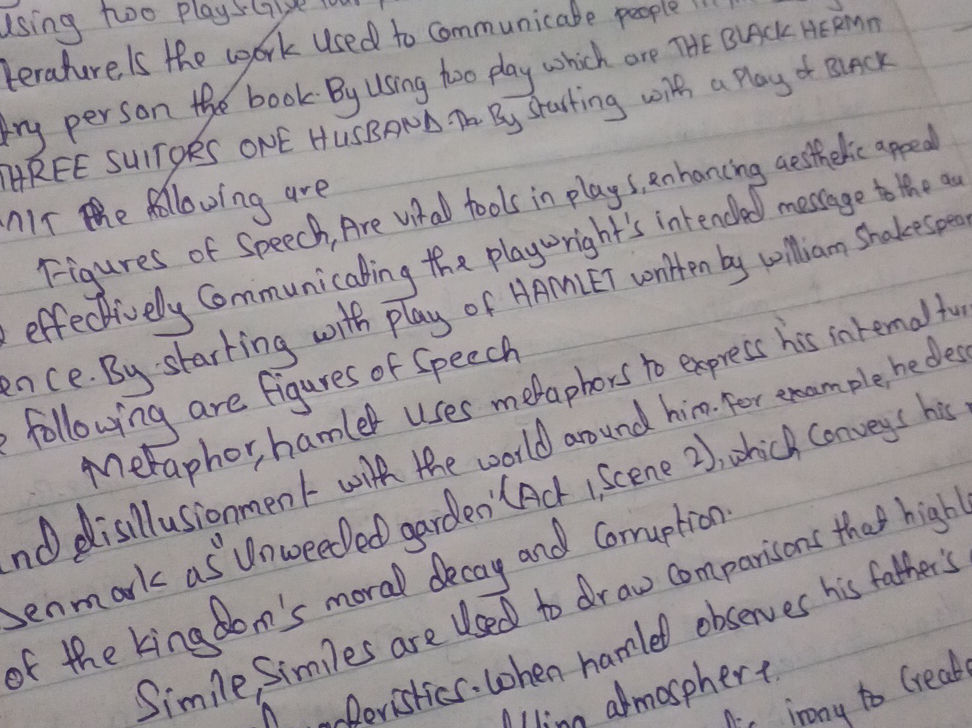 using two plays.
terature, Is the work Used to Communicate people
person the book. By Using two play which are THE BLACK HERMIT
THREE SUITORS ONE HUSBAND. By Starting with a Play of BLACK
MIT The following are
Figures of Speech, Are vital tools in plays, enhancing aesthetic appeal
effectively Communicating the playwright's intended message to the au
ence. By starting with play of HAMLET written by william Shakespear
following are figures of Speech
Metaphor, hamlet uses metaphors to express his internal tur
nd disillusionment with the world around him. For example, he desc
Denmark as "Unweeded garden" (Act 1, Scene 2), which Conveys his
of the kingdom's moral decay and Corruption.
Simile, Similes are Used to draw Comparisons that highli
cteristics. When hamlet observes his father's
atmosphere.
irony to Create